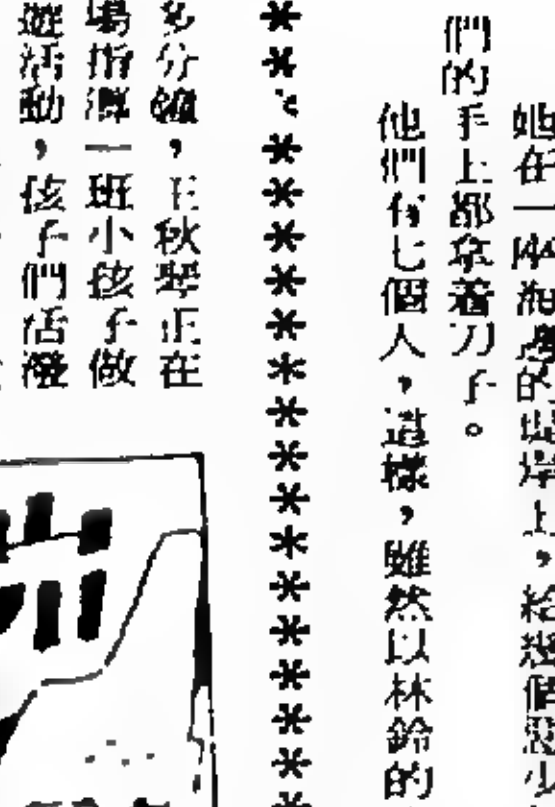 她在一個海邊的堤岸上，給幾個惡少
們的手上都拿着刀子。
他們有七個人，這樣，雖然以林鈴的
＊＊＊＊＊＊＊＊＊＊＊＊＊＊＊＊＊＊＊
多分鐘，王秋琴正在
場指導一班小孩子做
遊活動，孩子們活潑